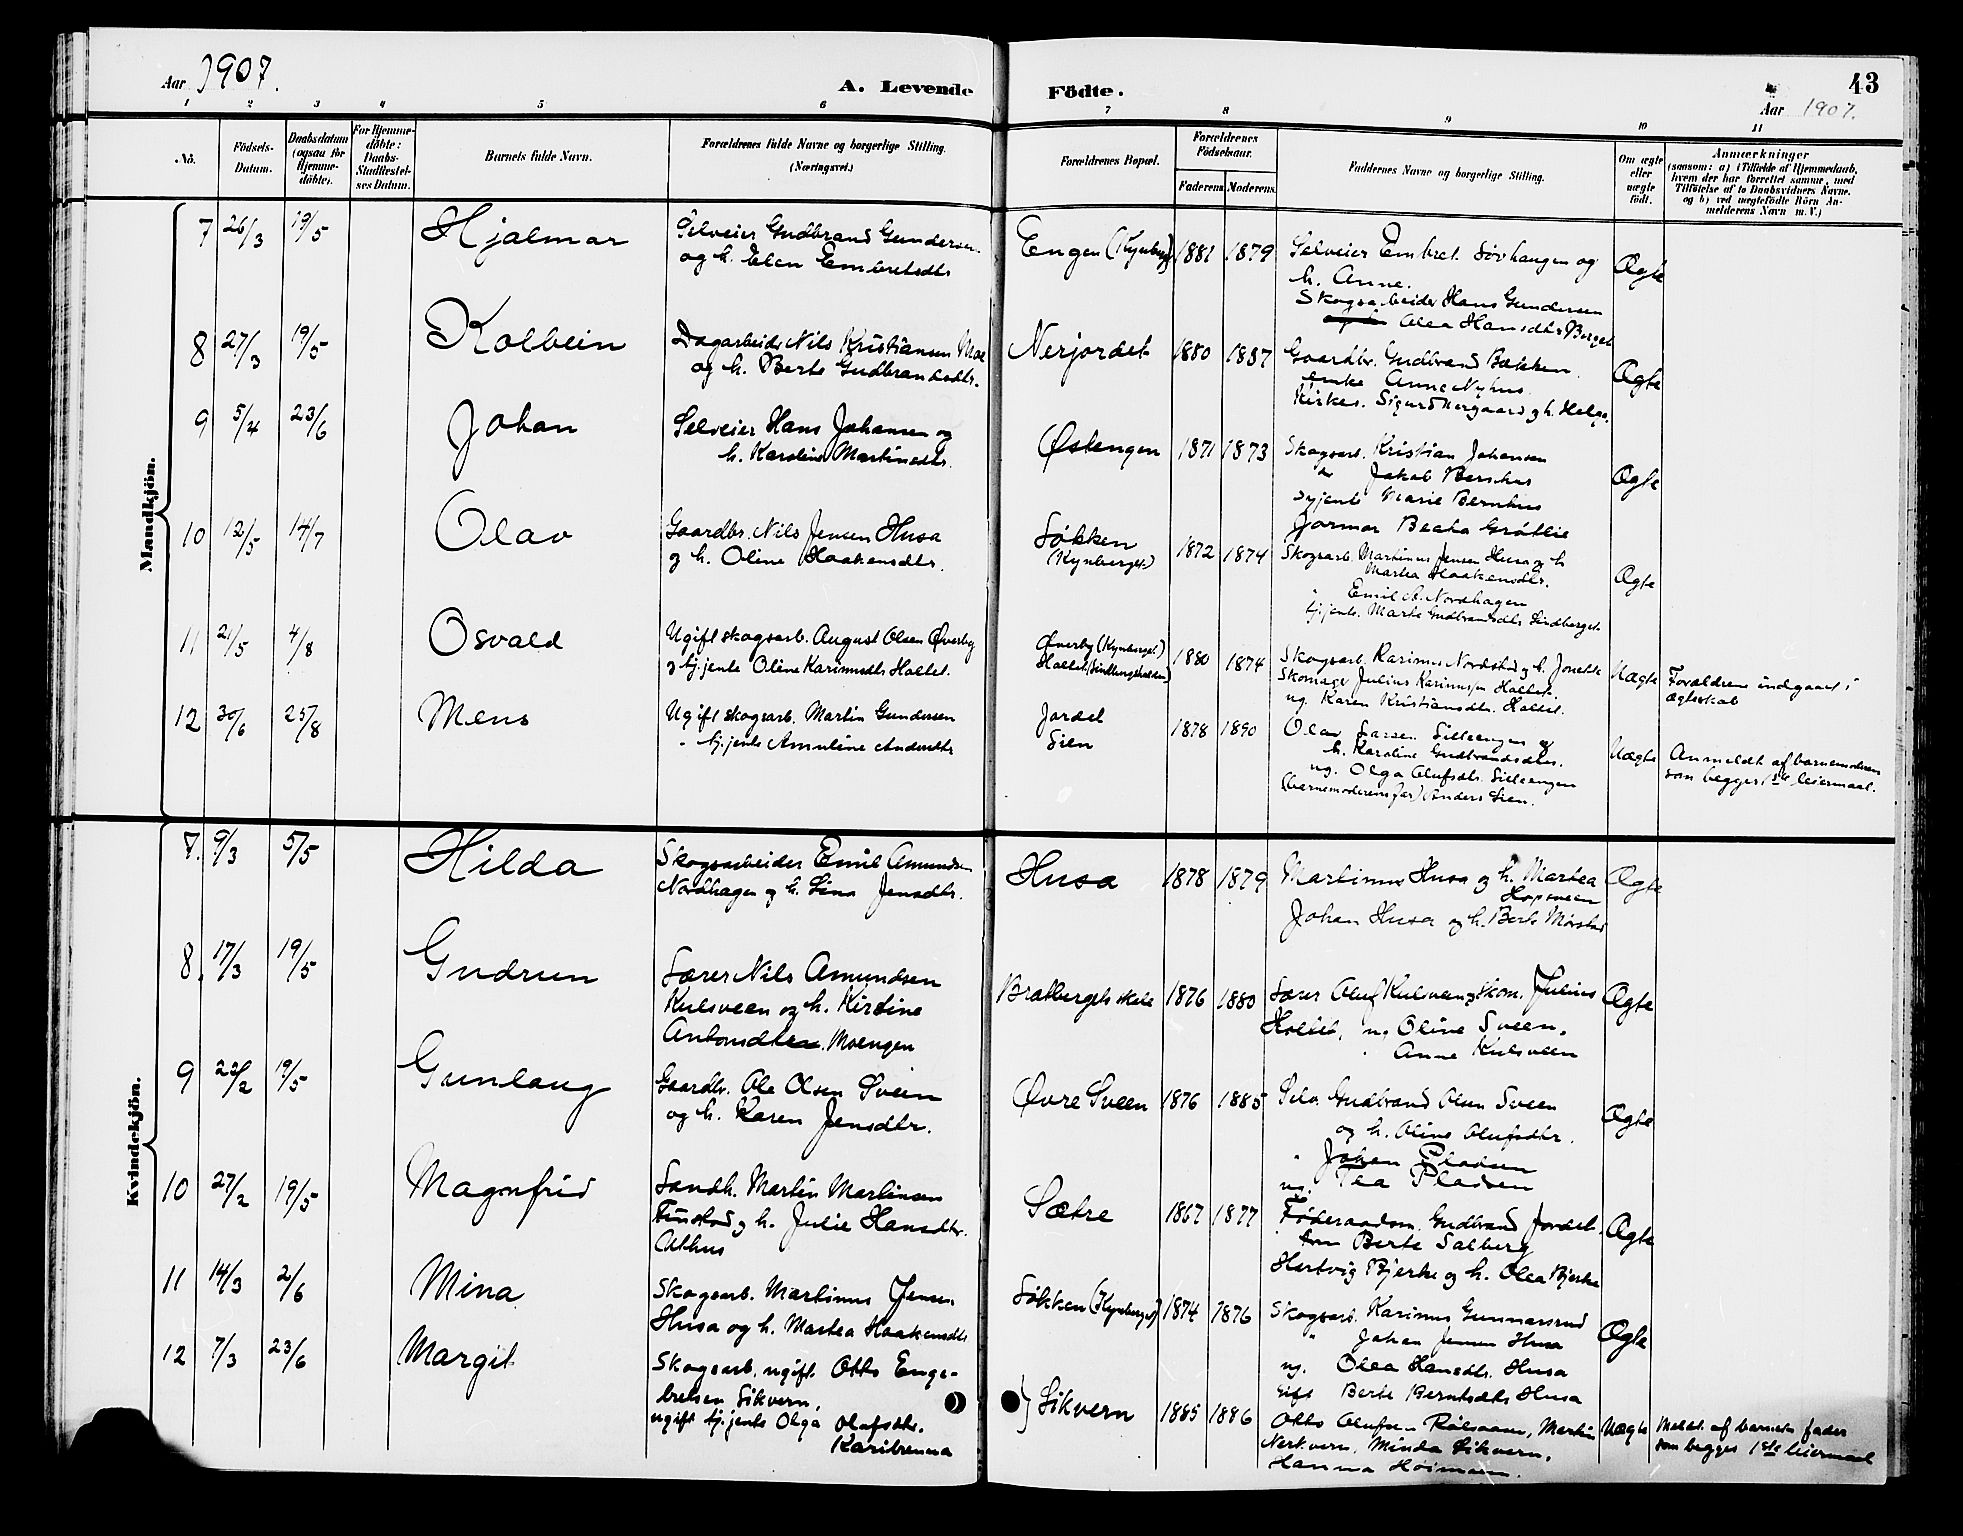 Aar 1907.
A. Levende Födte.
43
Aar 1907.
1 2 3 4 5 6 7 8 9 10 11
No.
Födsels-
Datum.
Daabsdatum
(ogsaa for
Hjemme-
döbte).
For Hjemme-
döbte:
Daabs-
Stadfæstel-
ses Datum.
Barnets fulde Navn.
Forældrenes fulde Navne og borgerlige Stilling.
(Næringsvei.)
Forældrenes Bopæl.
Forældrenes
Födselsaar.
Faderens Moderens.
Faddernes Navne og borgerlige Stilling.
Om ægte
eller
uægte
födt.
Anmærkninger
(saasom: a) i Tilfælde af Hjemmedaab,
hvem der har forrettet samme, med
Tilföielse af to Daabsvidners Navne.
og b) ved uægtefödte Börn An-
melderens Navn m. V.)
Mandkjön.
7 26/3 19/5 Hjalmar
Selveier Gudbrand Gundersen
og h. Elen Embretsdtr
Engen (Kynberg) 1881 1879
Selveier Embret Søvhaugen og
h. Anne.
Skogsarbeider Hans Gundersen
Olea Hansdtr Berget
Ægte
8 27/3 19/5 Kolbein
Dagarbeider Nils Kristiansen Moe
og h. Berte Gudbrandsdtr.
Nerjordet 1880 1887
Gaardbr. Gudbrand Bækken
enke Anne Nyhus
Kirkes. Sigurd Nergaard og h. Helga.
Ægte
9 5/4 23/6 Johan
Selveier Hans Johansen og
h. Karoline Martinsdtr.
Østengen 1871 1873
Skogsarb. Kristian Johansen
Jakob Bernhus
Marie Bernhus
Jormor Beata Grøtlie
Ægte
10 12/5 14/7 Olav
Gaardbr. Nils Jensen Husa
og h. Oline Haakensdtr.
Søkken
(Kynberget) 1872 1874
Skogsarb. Martinus Jensen Husa og h
Martea Haakensdtr.
" Emil A. Nordhagen
tj.jente. Marte Gudbrandsdtr Sindberget
Ægte
11 21/5 4/8 Osvald
Ugift skogsarb. August Olsen Øverby
og tj.jente Oline Karinusdtr Hollet.
Øverby (Kynberget) 1880 1874
Skogsarb. Karinus Nordstad og h. Jonette
Skomager Julius Karinussen Hollet.
ug. Karen Kristiansdtr. Hollet.
Uægte
Forældrene indgaaet i
ægteskab
12 30/6 25/8 Mens
Ugift skogsarb. Martin Gundersen
" tj.jente Amuline Andersdtr
Jordet
Sien 1878 1890
Olav Larsen Silleengen og
h. Karoline Gudbrandsdtr.
ug. Olga Olufsdtr. Silleengen
(barnemoderens far) Anders Sien.
Uægte
Anmeldt af barnemoderen
som begges 1ste leiermaal.
Kvindekjön.
7. 9/3 5/5 Hilda
Skogsarbeider Emil Amundsen
Nordhagen og h. Lina Jensdtr.
Husa 1878 1879
Martinus Husa og h. Martea
Hopsveen
Johan Husa og h. Berte Mørstad
Ægte
8. 17/3 19/5 Gudrun
Lærer Nils Amundsen
Kulsveen og h. Kirstine
Antonsdtr. Moengen
Bratbergets skole 1876 1880
Lærer Oluf Kulsveen, skom. Julius
Hollet, ug Oline Sveen.
" Anne Kulsveen
Ægte
9 22/2 19/5 Gunlaug
Gaardbr. Ole Olsen Sveen
og h. Karen Jensdtr.
Øvre Sveen 1876 1885
Selv. Gudbrand Olsen Sveen
og h. Oline Olufsdtr.
" Johan Pladsen
ug. Tea Pladsen
Ægte
10 27/2 19/5 Magnfrid
Landh. Martin Martinsen
Finstad og h. Julie Hansdtr.
Athus
Sætre 1867 1877
Føderaadsm. Gudbrand Jordet.
Berte Salberg
Hartvig Bjerke og h. Olea Bjerke
Ægte
11 14/3 2/6 Mina
Skogsarb. Martinus Jensen
Husa og h. Martea Haakensdtr
Søkken (Kynberget) 1874 1876
Skogsarb. Karinus Gunnarsrud
" Johan Jensen Husa
ug. Olea Hansdtr. Husa
Gift Berte Berntsdtr Husa
Ægte
12 7/3 23/6 Margit
Skogsarb. ugift. Otto Enge-
bretsen Sikvern,
ugift tj.jente Olga Olafsdtr.
Karibrenna
} Sikvern 1885 1886
Otto Olufsen Rølsaasen, Martin
Nerkvern, Minda Sikvern,
Hanna Hoimoen.
Uægte
Meldt af barnets fader
som begges 1ste leiermaal